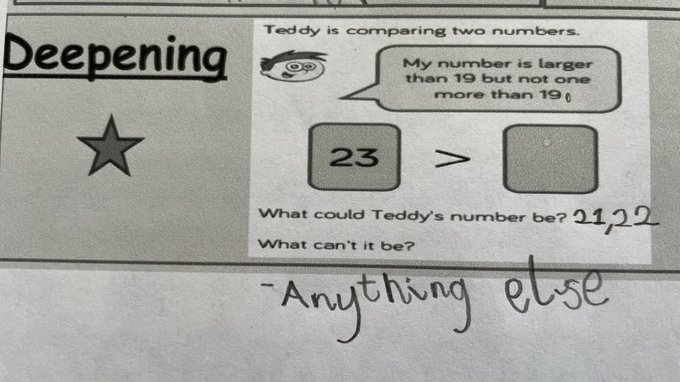 Deepening
Teddy is comparing two numbers.
My number is larger
than 19 but not one
more than 19.
23 >
What could Teddy's number be? 21,22
What can't it be?
-Anything else